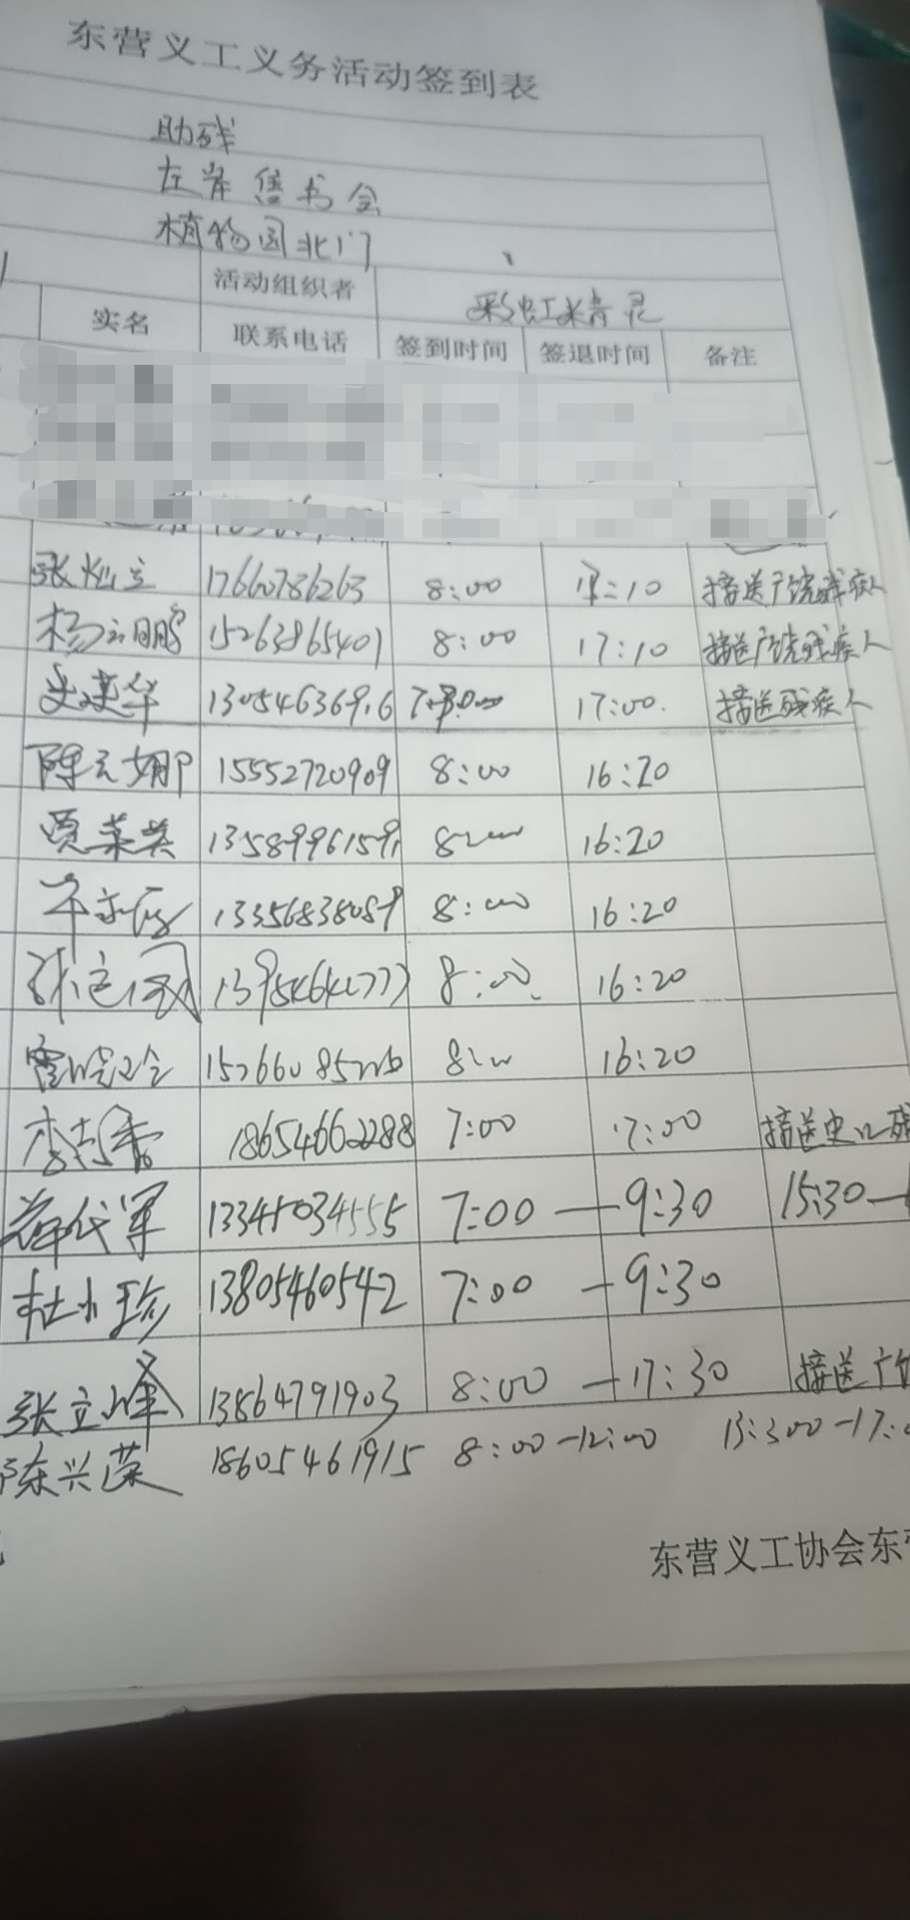 东营义工义务活动签到表
助残
左岸售书会
植物园北门
活动组织者 彩虹精灵
实名 联系电话 签到时间 签退时间 备注
张灿立 17660786263 8:00 17:10 接送广饶残疾人
杨云鹏 15263865401 8:00 17:10 接送广饶残疾人
13054636916 17:00. 接送残疾人
陈云娜 15552720909 8:00 16:20
贾荣英 13589961591 8:00 16:20
13356838089 8:00 16:20
8:00 16:20
8:00 16:20
18654660288 7:00 17:00 接送史口残
代军 13345034555 7:00 — 9:30 15:30—
杜小珍 13805460542 7:00 — 9:30
张立峰 13864791903 8:00 — 17:30 接送广饶
陈兴荣 18605461915 8:00-12:00
东营义工协会东营